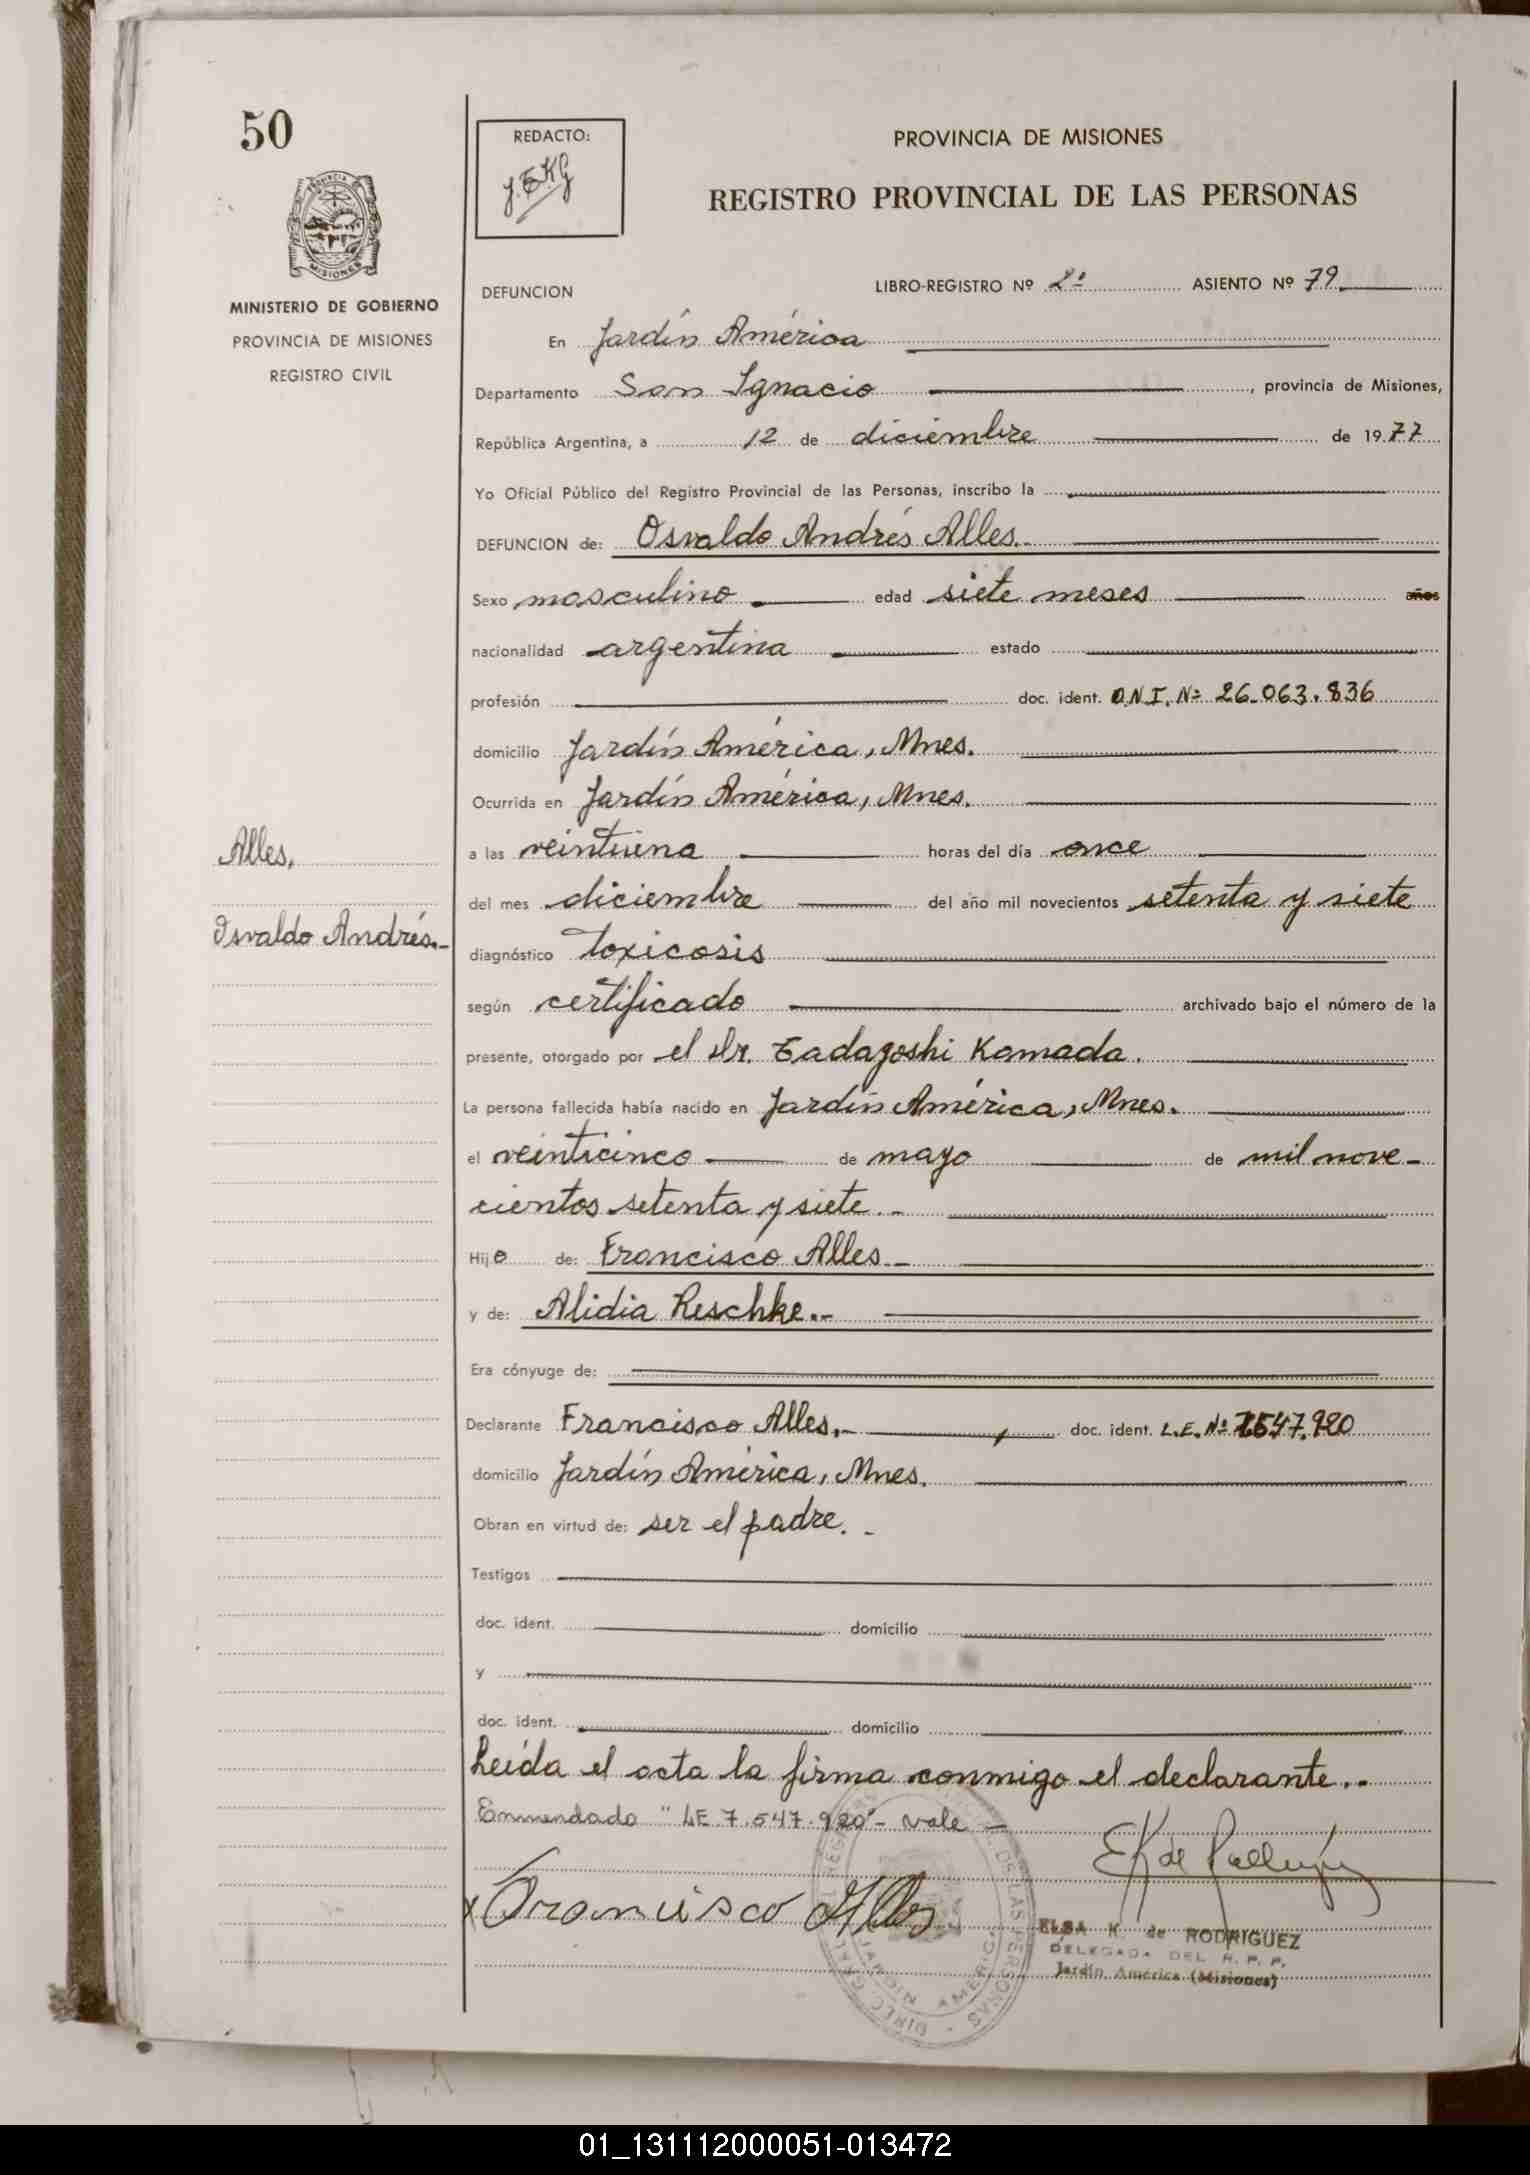 50
REDACTO:
PROVINCIA DE MISIONES
REGISTRO PROVINCIAL DE LAS PERSONAS
PROVINCIA
MISIONES
MINISTERIO DE GOBIERNO
PROVINCIA DE MISIONES
REGISTRO CIVIL
DEFUNCION LIBRO-REGISTRO Nº 2º ASIENTO Nº 79
En Jardín América
Departamento San Ignacio, provincia de Misiones,
República Argentina, a 12 de diciembre de 1977
Yo Oficial Público del Registro Provincial de las Personas, inscribo la
DEFUNCION de: Osvaldo Andrés Alles.
Sexo masculino edad siete meses años
nacionalidad argentina estado
profesión doc. ident. D.N.I. Nº 26.063.836
domicilio Jardín América, Mnes.
Ocurrida en Jardín América, Mnes.
Alles,
a las veintiuna horas del día once
del mes diciembre del año mil novecientos setenta y siete
Osvaldo Andrés.-
diagnóstico toxicosis
según certificado archivado bajo el número de la
presente, otorgado por el Dr. Tadayoshi Kamada.
La persona fallecida había nacido en Jardín América, Mnes.
el veinticinco de mayo de mil nove-
cientos setenta y siete.-
Hijo de: Francisco Alles.-
y de: Alidia Reschke.-
Era cónyuge de:
Declarante Francisco Alles.- doc. ident. L.E. Nº 7.547.920
domicilio Jardín América, Mnes.
Obran en virtud de: ser el padre.-
Testigos
doc. ident. domicilio
y
doc. ident. domicilio
Leída el acta la firma conmigo el declarante.-
Enmendado "LE 7.547.920"- vale-
x Francisco Alles
ELSA K. de RODRIGUEZ
DELEGADA DEL R. P. P.
Jardín América (Misiones)
01_131112000051-013472